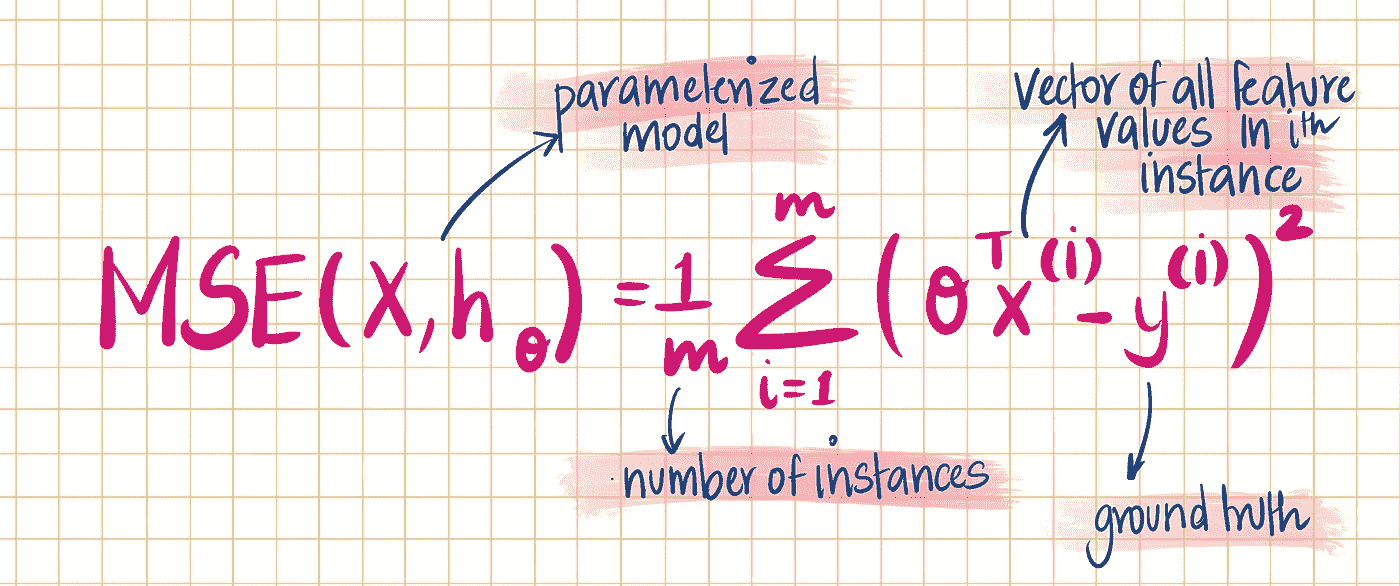 parameterized
model
vector of all feature
values in iᵗʰ
instance
MSE(X, h_θ) = 1/m Σ_{i=1}^{m} (θᵀx⁽ⁱ⁾ - y⁽ⁱ⁾)²
number of instances
ground truth